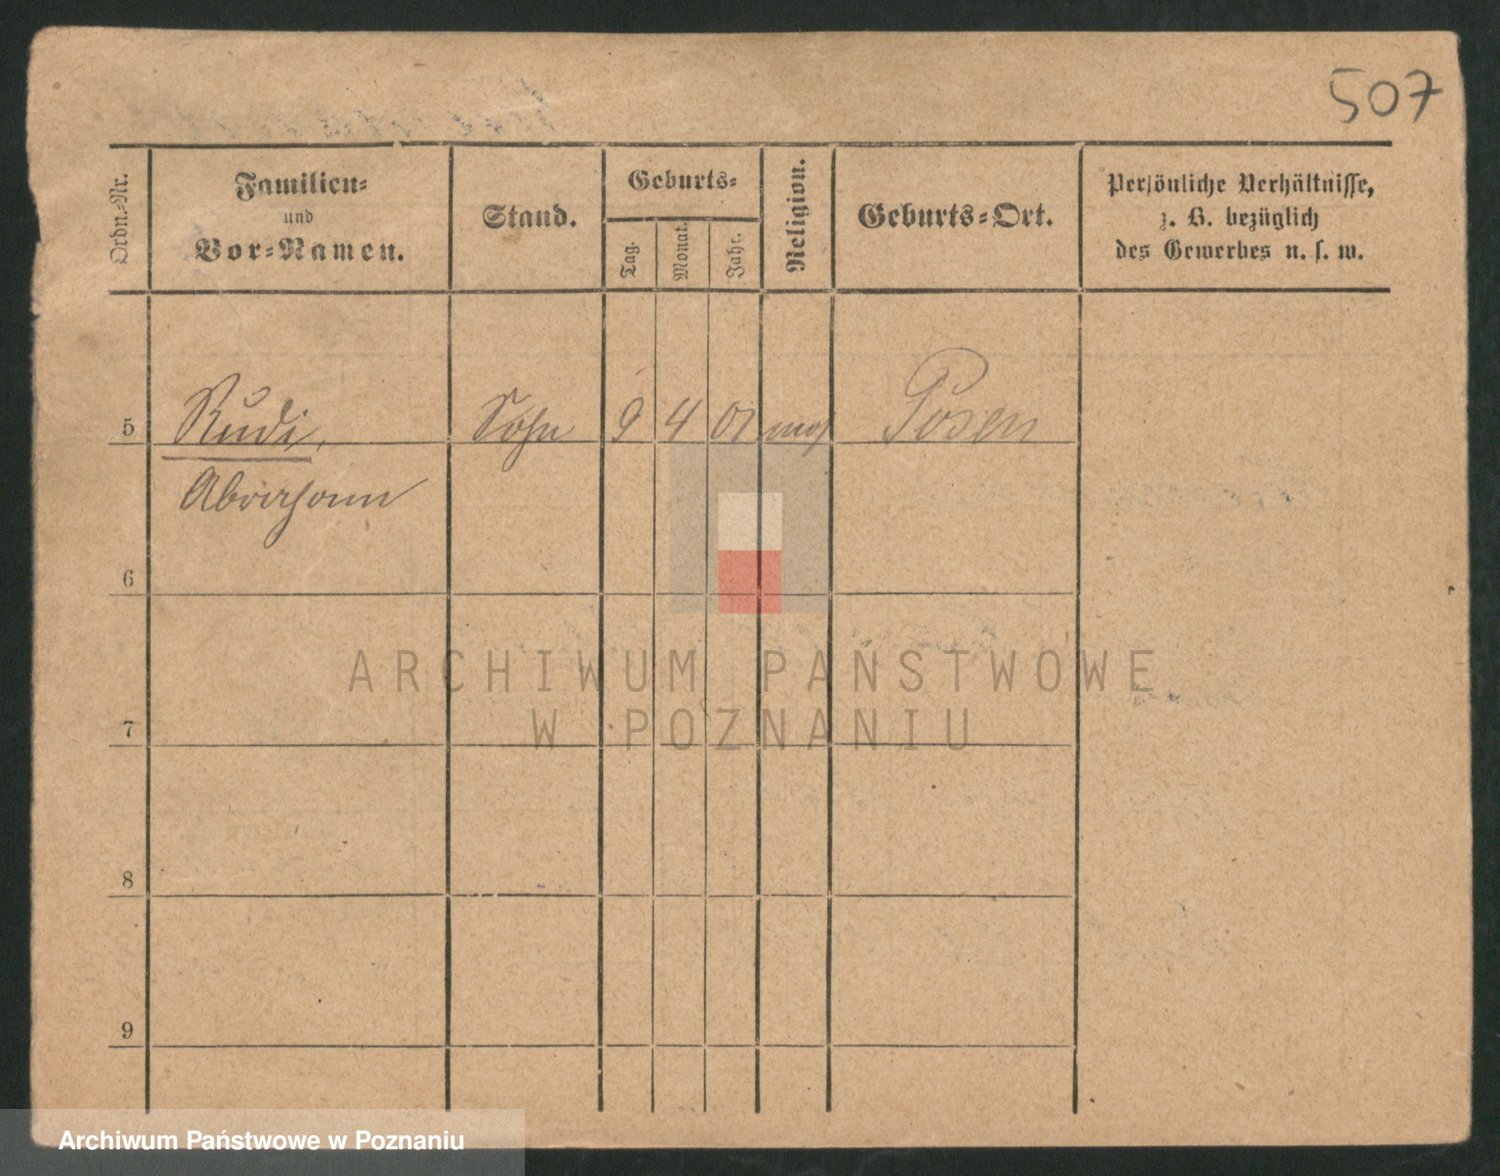 507
Ordn.-Nr.
Familien-
und
Vor-Namen.
Stand.
Geburts-
Tag.
Monat.
Jahr.
Religion.
Geburts-Ort.
Persönliche Verhältnisse,
z. B. bezüglich
des Gewerbes u. s. w.
5 Rudi, Sohn 9 4 01 mos Posen
Abraham
6
7
8
9
ARCHIWUM PAŃSTWOWE
W POZNANIU
Archiwum Państwowe w Poznaniu